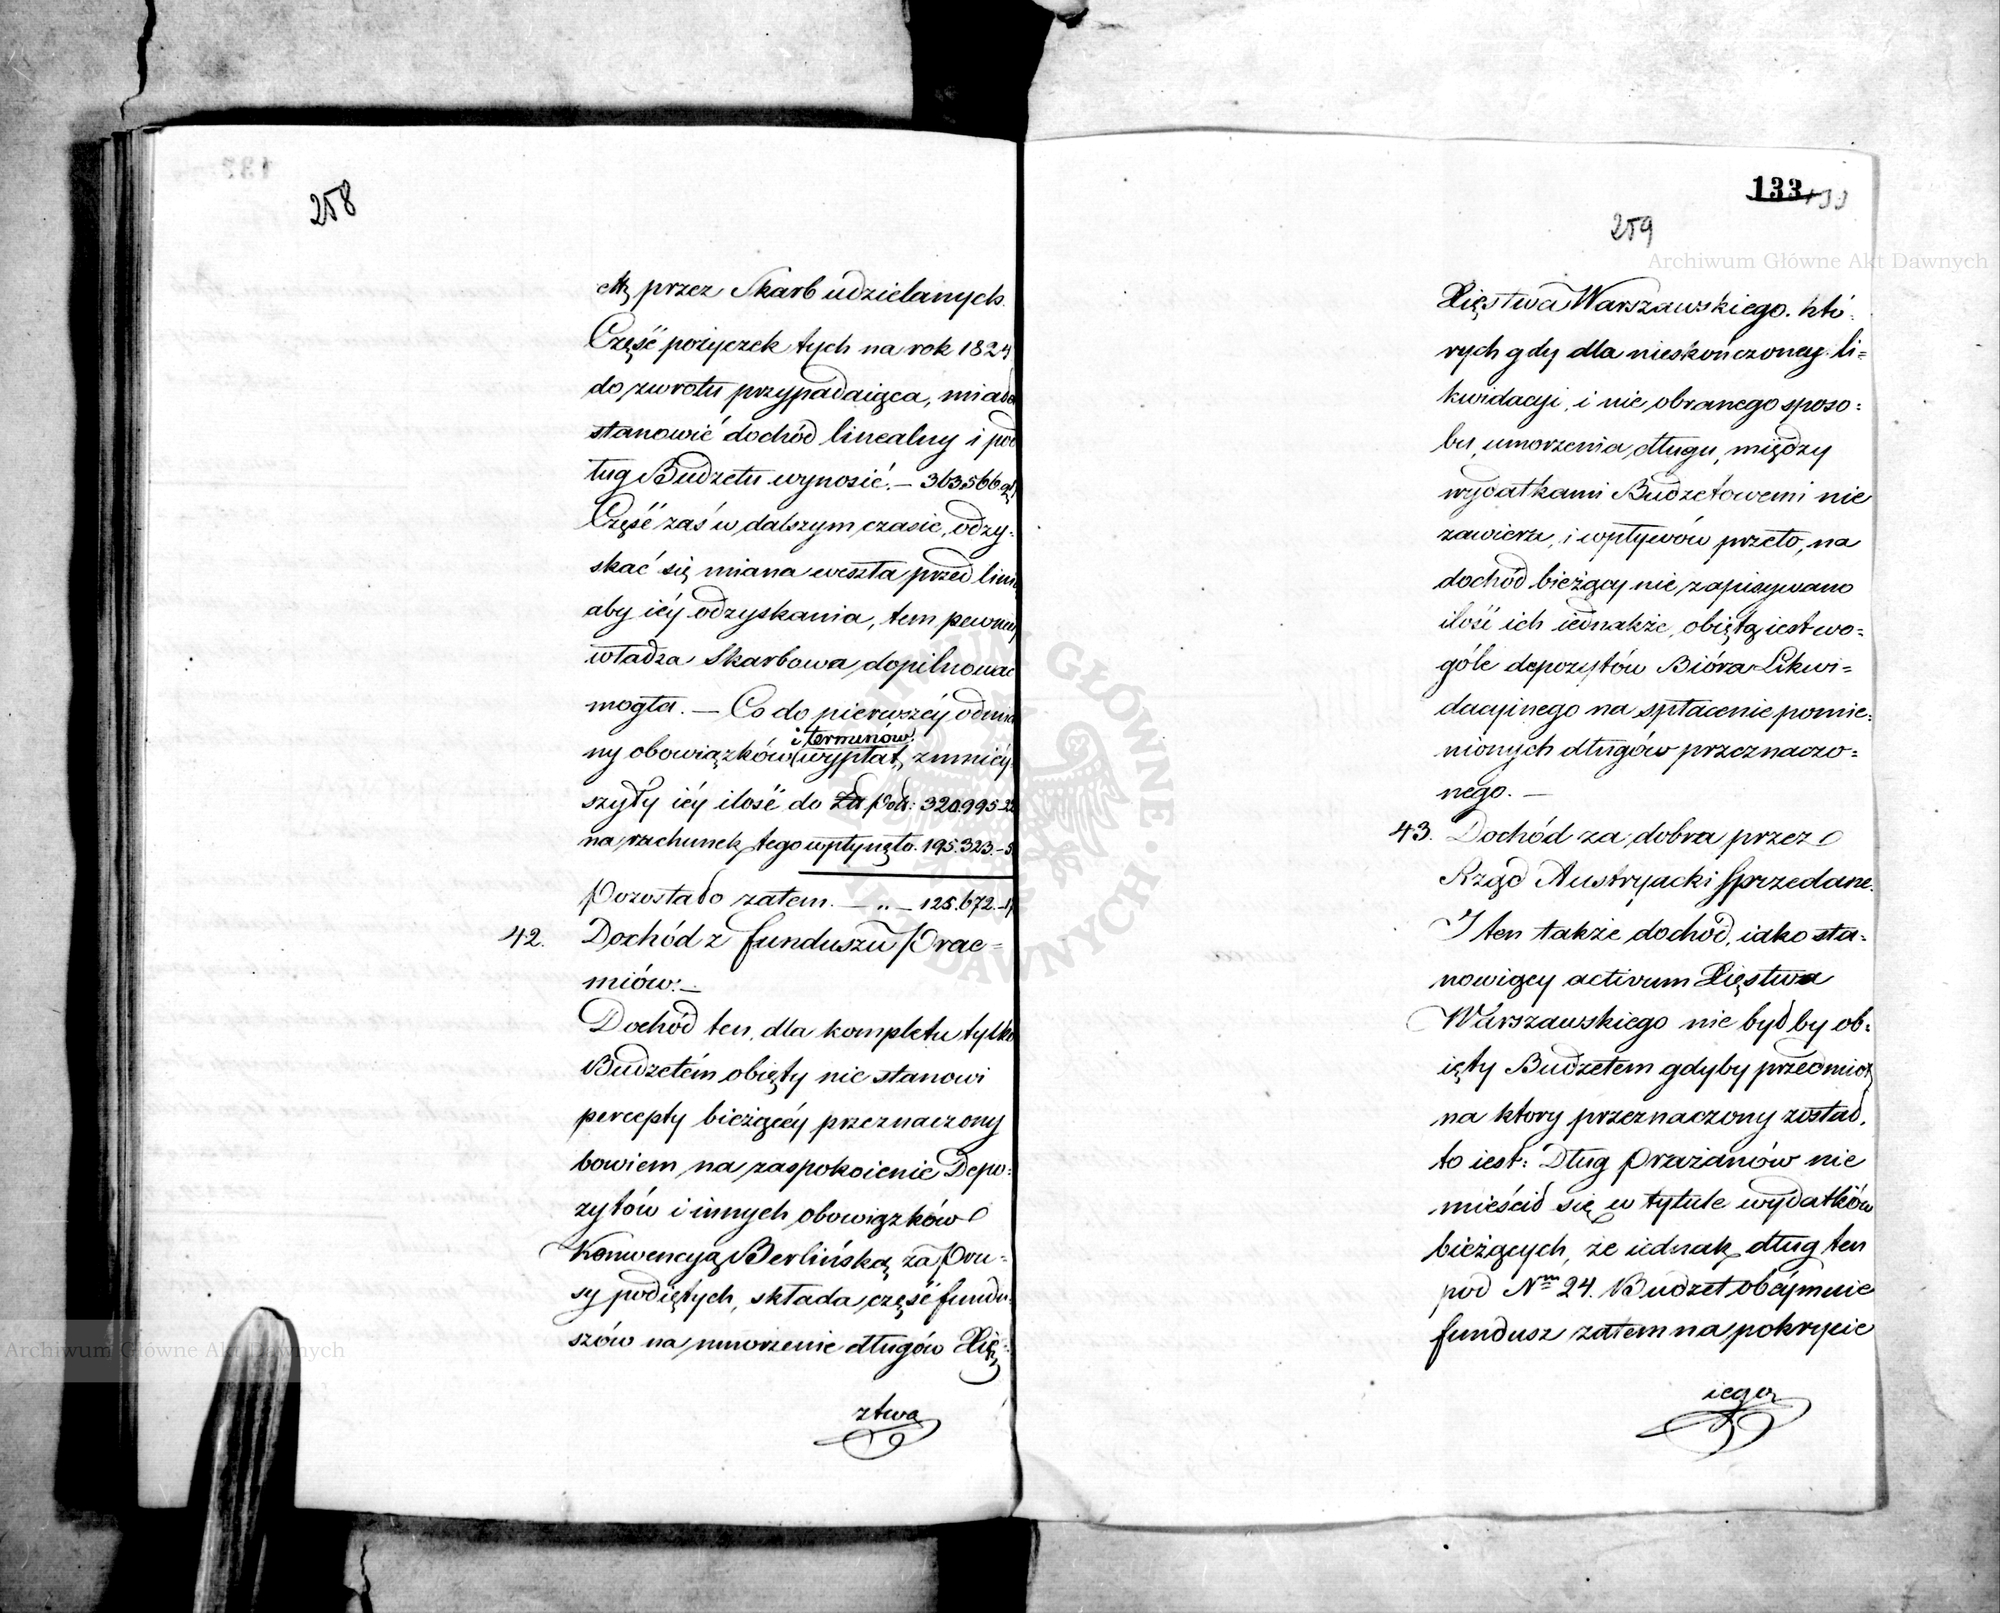 258
przez Skarb udzielanych.
Część pożyczek tych na rok 1824
do zwrotu przypadaiąca, miała
stanowić dochód linealny i pod
ług Budżetu wynosić. — 363.566
Część zaś w dalszym czasie, odzy-
skać się miana weszła przed linię
aby iéy odzyskania, tem pewniey
władza Skarbowa dopilnować
mogła. — Co do pierwszéy odmia
i terminów
ny obowiązków wypłat, zmniéy
szyły iéy ilość do 320.995
na rachunek tego wpłynęło. 195.323.-5
Pozostało zatem. — „ — 125.672.-17
42. Dochód z funduszu Prac=
miów. —
Dochód ten, dla kompletu tylko
Budżetém obięty nie stanowi
percepty bieżącéy przeznaczony
bowiem na zaspokoienie Depo=
zytów i innych obowiązków
Konwencyą Berlińską za Pru=
sy podiętych, składa część fundu=
szów na umorzenie długów Xię=
ztwa
133
133
259
Archiwum Główne Akt Dawnych
Xięstwa Warszawskiego. któ=
rych gdy dla nieskończoney li=
kwidacyi, i nie obranego sposo=
bu, umorzenia długu, między
wydatkami Budżetowemi nie
zawiera, i wpływów przeto, na
dochód bieżący nie zapisywano
ilość ich iednakże, obiętą iest wo=
góle depozytów Bióra Likwi=
dacyinego na spłacenie pomie=
nionych długów przeznaczo=
nego. —
43. Dochód za dobra przez
Rząd Austryacki sprzedane.
I ten także dochód, iako sta=
nowiący activum Xięstwa
Warszawskiego nie byłby ob=
ięty Budżetem gdyby przedmiot
na ktory przeznaczony został,
to iest: Dług Prażanów nie
mieścił się w tytule wydatków
bieżących, że iednak dług ten
pod Nrm 24. Budżet obéymuie
fundusz zatem na pokrycie
iego
Archiwum Główne Akt Dawnych
ARCHIWUM GŁÓWNE AKT DAWNYCH